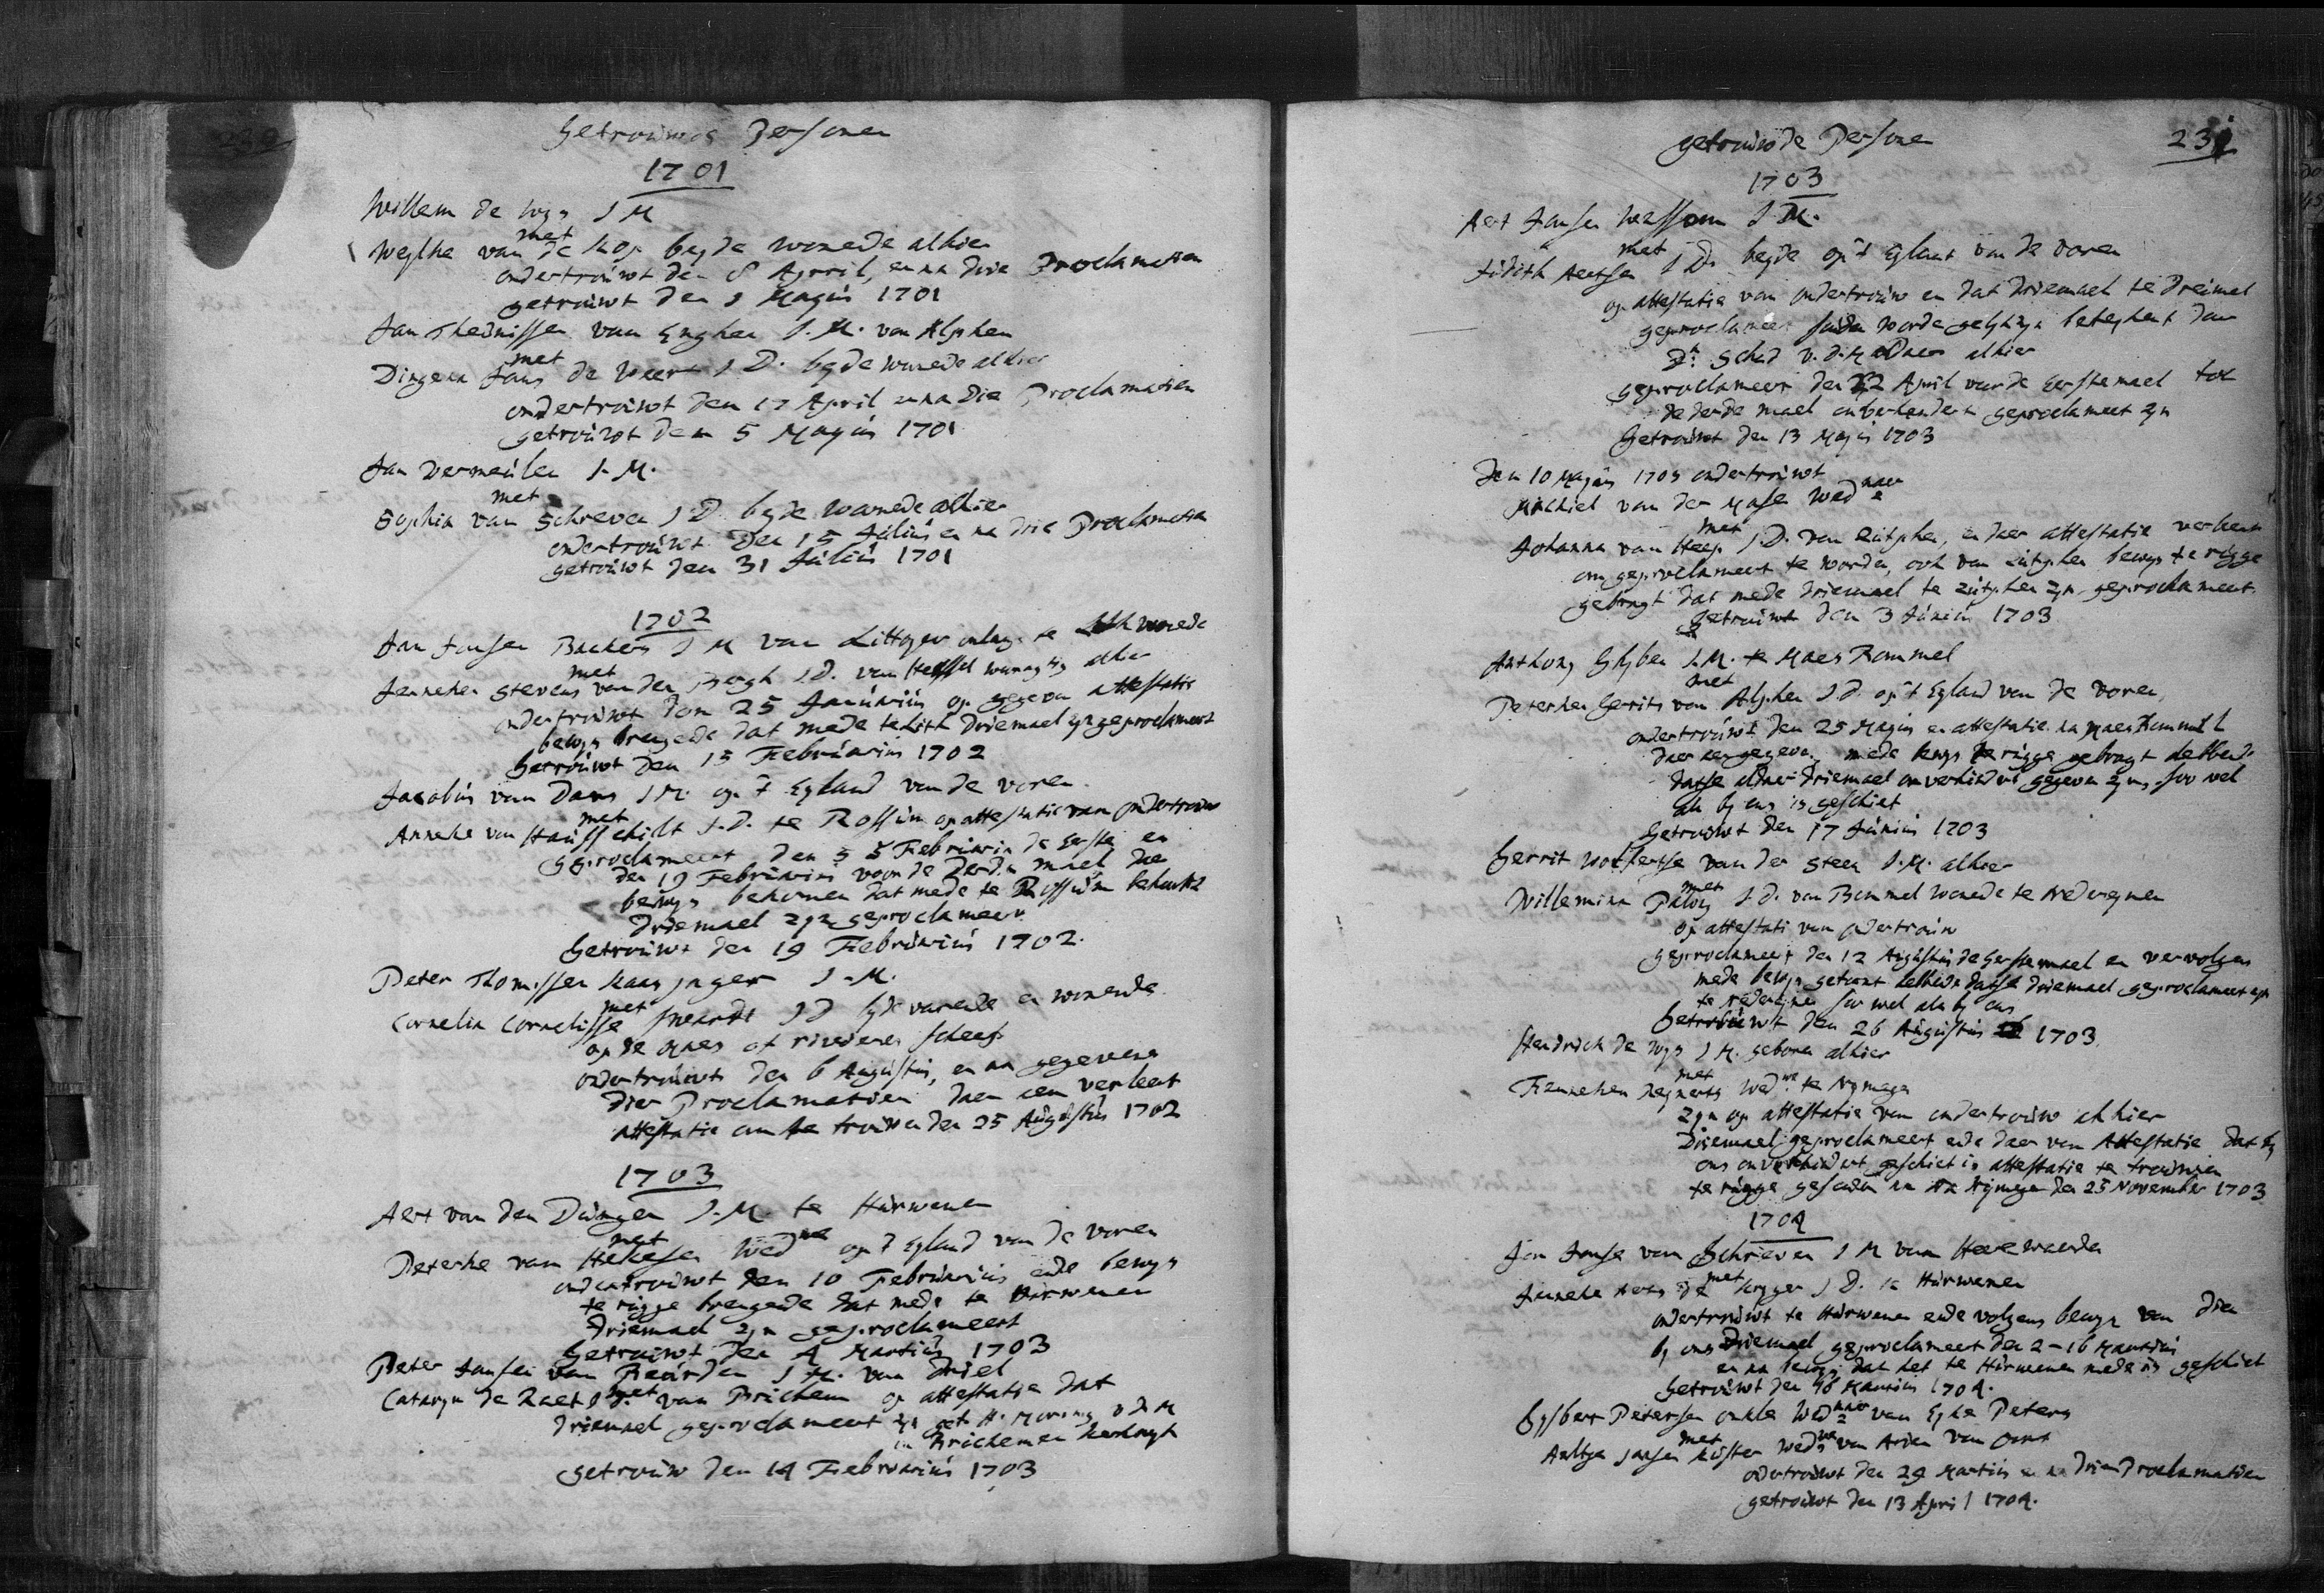 230
Getrouwde Personen
1701
Willem de Wys J M
met
Weylke van de Kop beyde wonende alhier
ondertrouwt den 8 April, en na drie Proclamatien
getrouwt den 1 Mayus 1701
Jan Theunissen van Enghen J. M. van Alphen
met
Dingena Jans de Weert J D. beyde wonende alhier
ondertrouwt den 17 April en na drie Proclamatien
getrouwt den 5 Mayus 1701
Jan Vermeulen J. M.
met
Sophia van Schreven J D. beyde wonende alhier
ondertrouwt den 15 Julius en na drie Proclamatien
getrouwt den 31 Julius 1701
1702
Jan Jansen Backers J M van Littoyen te Lith wonende
met
Jenneken Stevens van den Bergh J D. van Hessel alhier
ondertrouwt den 25 Januarius op gegeven attestatie
bewys brengende dat mede te Lith driemael zyn geproclameert
Getrouwt den 15 Februarius 1702
Jacobus van Dam J M. op 't Eyland van de Voren
met
Anneke van Hauffchilt J. D. te Rossum op attestatie van ondertrouw
geproclameert den 5 Februarius de Eerste en
den 19 Februarius voor de derde mael, die
bewys bekomen dat mede te Rossum
driemael zyn geproclameert
Getrouwt den 19 Februarius 1702.
Peter Thomissen Kaas jager J. M.
met
Cornelia Cornelisse Sweerts J D beyde varende en wonende
op de Maes of rivieren scheep
ondertrouwt den 6 Augustus, en na gegevene
drie Proclamatien daer een verleent
attestatie om te trouwen den 25 Augustus 1702
1703
Aert van den Dungen J. M. te Hurwenen
met
Peterke van Hekesen Wed we op 't Eyland van de Voren
ondertrouwt den 10 Februarius ende bewys
te rugge brengende dat mede te Hurwenen
driemael zyn geproclameert
Getrouwt den 4 Martius 1703
Peter Jansen van Beurden J M. van Driel
met
Cataryn de Raet J D. van Brichem op attestatie dat
driemael geproclameert zyn H. Moring v D M
in Brichemen
getrouw den 14 Februarius 1703
231
getrouwde Personen
1703
Aert Jansen Wessom J. M.
met
Judith Aertsen J D. beyde op 't Eylant van de Voren
op attestatie van ondertrouw en dat driemael te Dreumel
geproclameert souden worde gelyk zyn beteykent door
Ds. Sched v. d. M alhier
geproclameert den 22 April voor de Eerstemael tot
de derde mael onverhindert geproclameert zyn
Getrouwt den 13 Majus 1703
Den 10 Mayus 1703 ondertrouwt
Michiel van der Masen Wed naer
met
Johanna van Heep J. D. van Zutphen, en daer attestatie verleent
om geproclameert te worden, ook van Zutphen bewys te rugge
gebragt dat mede driemael te Zutphen zyn geproclameert
Getrouwt den 3 Junius 1703
Anthony Gysben J. M. te Maes Bommel
met
Peterken Gerrits van Alphen J. d. op 't Eyland van de Voren,
ondertrouwt den 25 Mayus en attestatie na Maes Bommel
daer een gegeven, mede bewys te rugge gebragt hebbende
datse aldaer driemael onverhindert gegeven zyn, soo wel
als by ons is geschiet
Getrouwt den 17 Junius 1703
Gerrit Woltersse van der Steen J. M. alhier
met
Willemina Paloy J d. van Bommel wonede te Nederynen
op attestati van ondertrouw
geproclameert den 12 Augustus de Eerstemael en vervolgens
mede bewys getoont hebbende datse driemael geproclameert zyn
te Nederynen soo wel als by ons
Getrouwt den 26 Augustus 1703
Hendrick de Wys J M. geboren alhier
met
Fenneken Reynerts Wed we te Nymegen
zyn op attestatie van ondertrouw alhier
Driemael geproclameert ende daer van Attestatie dat by
ons onverhindert geschiet is attestatie te trouwen
te rugge gesonden na Nymegen den 25 November 1703
1704
Jan Janse van Schreven J M van Heerewaerden
met
Jenneke Aerts de Leyger J D. te Hurwenen
ondertrouwt te Hurwenen ende volgens bewys van dien
by ons driemael geproclameert den 2 - 16 Martius
en na bewys dat het te Hurwenen mede is geschiet
Getrouwt den 16 Martius 1704.
Gysbert Petersen Wed naer van Eyke Peters
met
Aeltje Jansen Koster Wed we van Arien van Oort
ondertrouwt den 29 Martius en na drie Proclamatien
getrouwt den 13 April 1704.